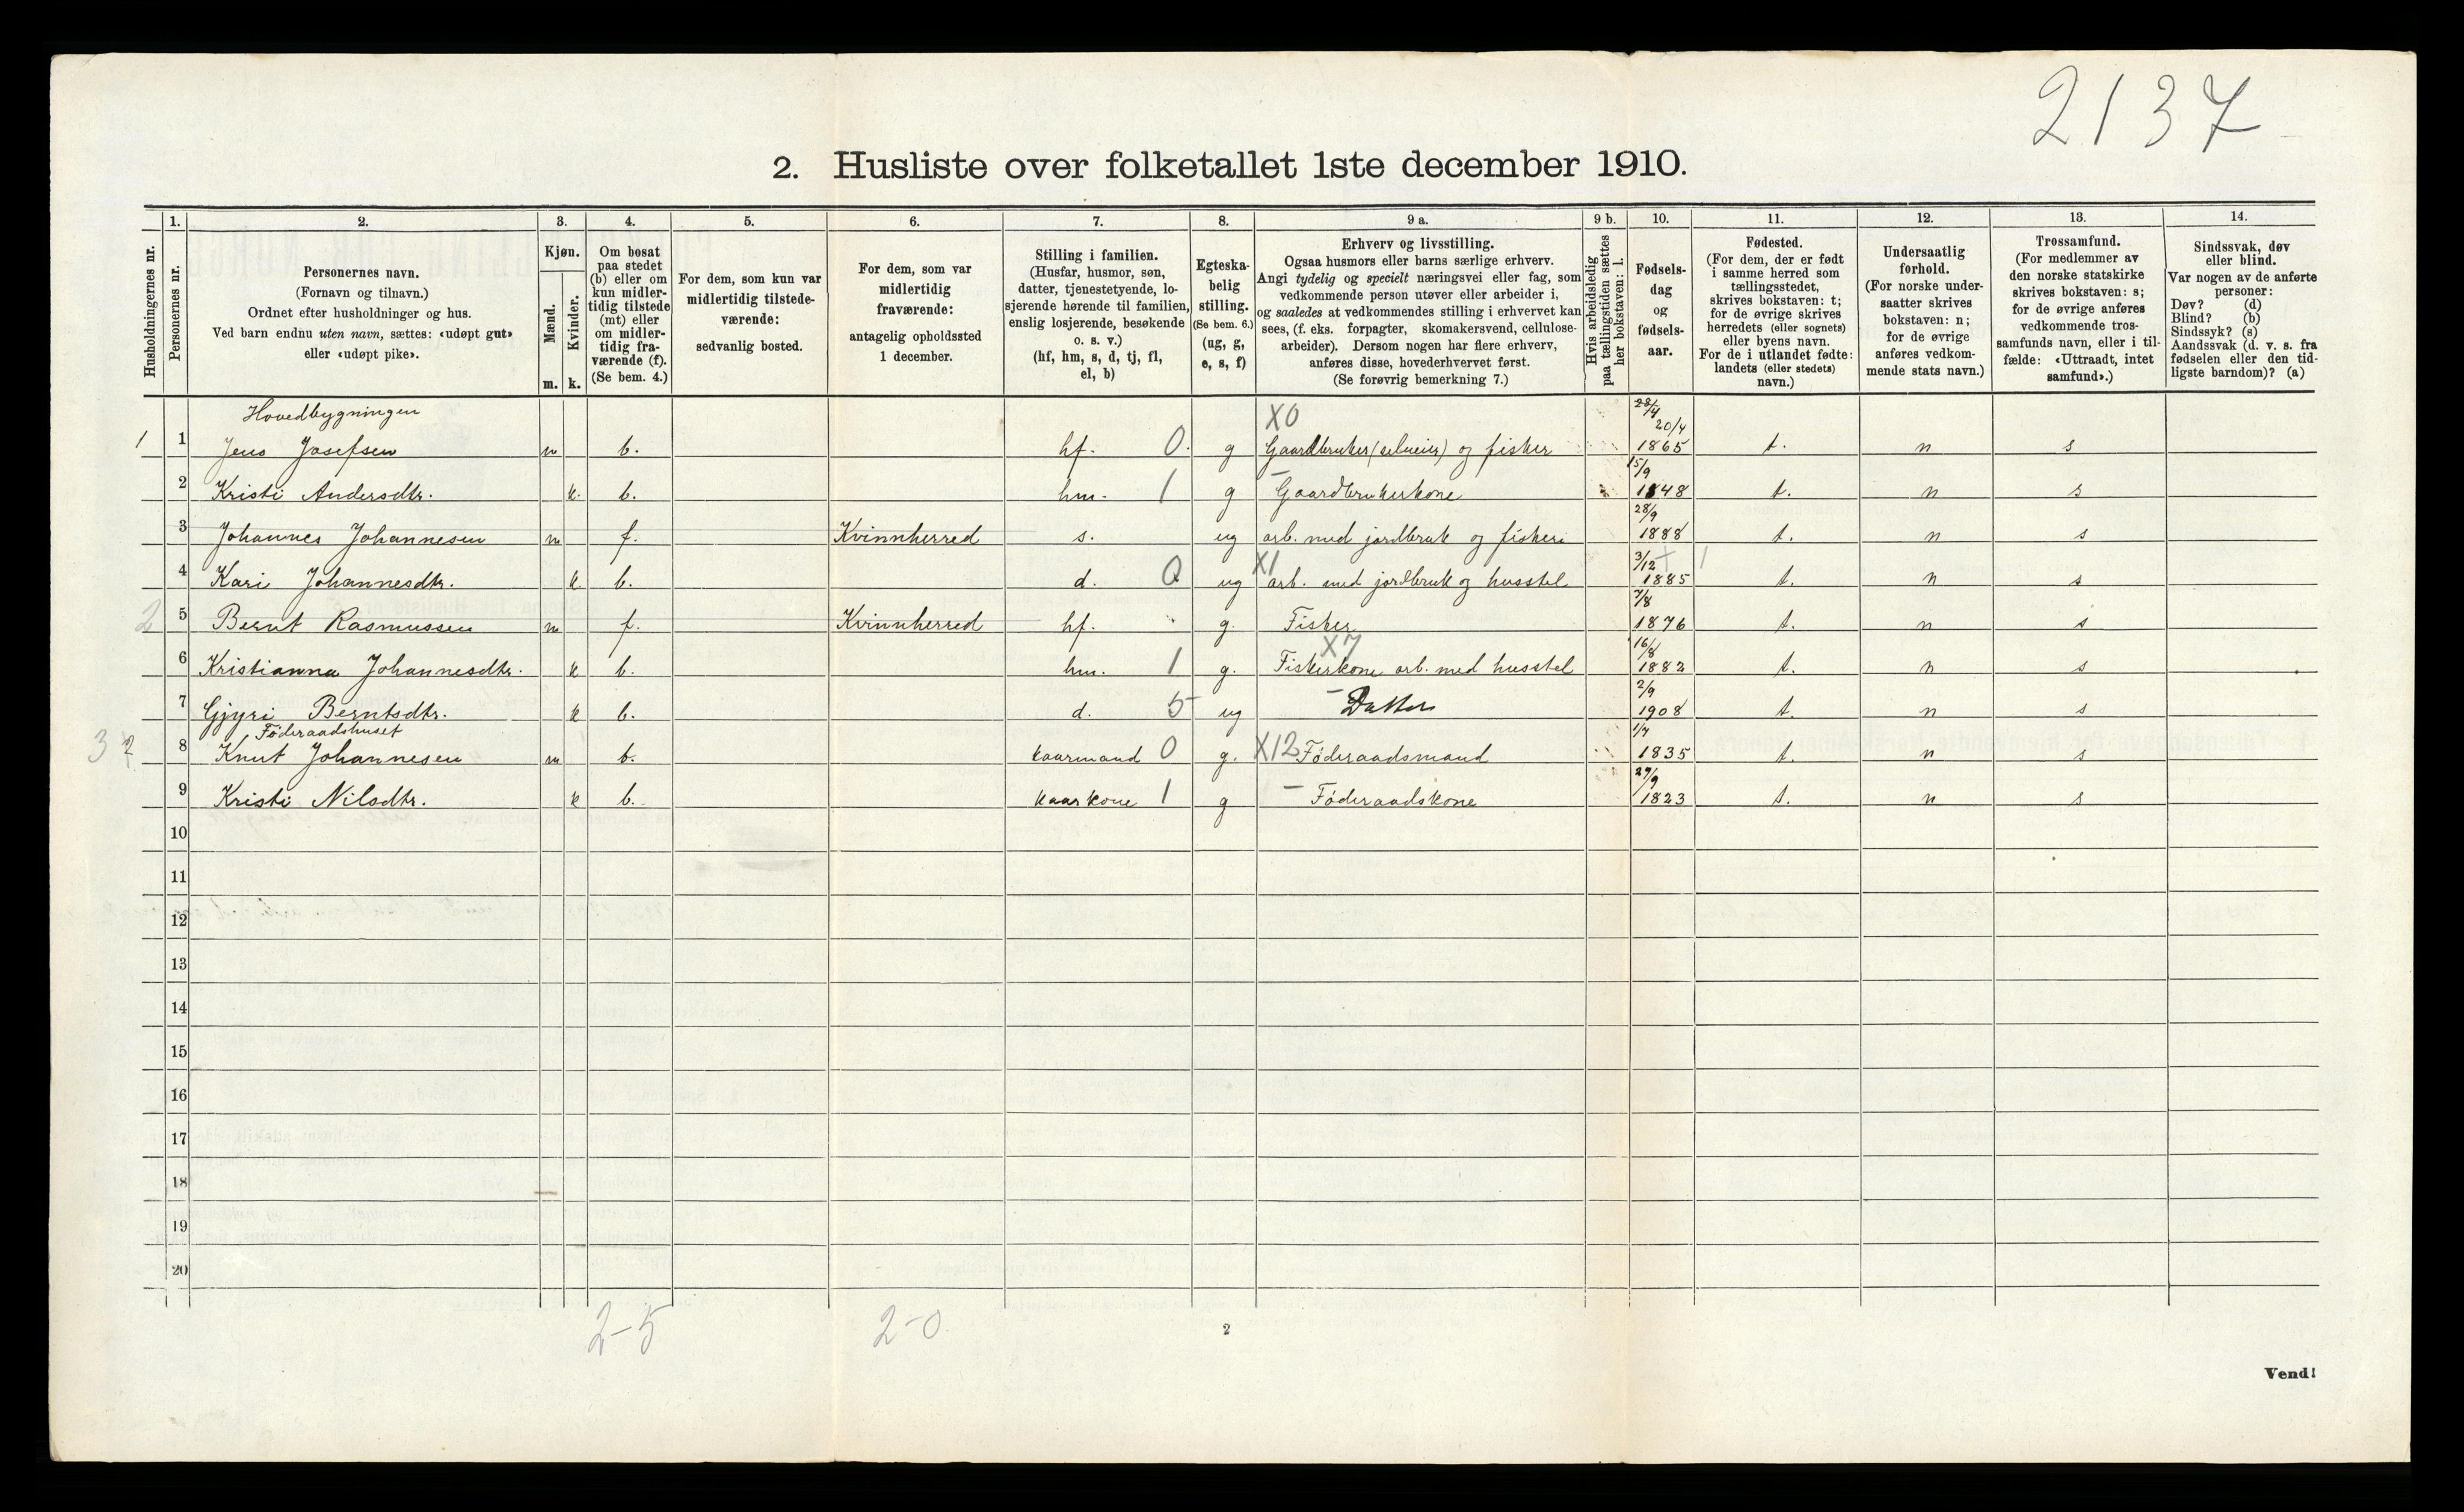 2137
2. Husliste over folketallet 1ste december 1910.
Husholdningernes nr.
1.
Personernes nr.
2.
Personernes navn.
(Fornavn og tilnavn.)
Ordnet efter husholdninger og hus.
Ved barn endnu uten navn, sættes: «udøpt gut»
eller «udøpt pike».
3.
Kjøn.
Mænd.
Kvinder.
m. k.
4.
Om bosat
paa stedet
(b) eller om
kun midler-
tidig tilstede
(mt) eller
om midler-
tidig fra-
værende (f).
(Se bem. 4.)
5.
For dem, som kun var
midlertidig tilstede-
værende:
sedvanlig bosted.
6.
For dem, som var
midlertidig
fraværende:
antagelig opholdssted
1 december.
7.
Stilling i familien.
(Husfar, husmor, søn,
datter, tjenestetyende, lo-
sjerende hørende til familien,
enslig losjerende, besøkende
o. s. v.)
(hf, hm, s, d, tj, fl,
el, b)
8.
Egteska-
belig
stilling.
(Se bem. 6.)
(ug, g,
e, s, f)
9 a.
Erhverv og livsstilling.
Ogsaa husmors eller barns særlige erhverv.
Angi tydelig og specielt næringsvei eller fag, som
vedkommende person utøver eller arbeider i,
og saaledes at vedkommendes stilling i erhvervet kan
sees, (f. eks. forpagter, skomakersvend, cellulose-
arbeider). Dersom nogen har flere erhverv,
anføres disse, hovederhvervet først.
(Se forøvrig bemerkning 7.)
9 b.
Hvis arbeidsledig
paa tællingstiden sættes
her bokstaven: l.
10.
Fødsels-
dag
og
fødsels-
aar.
11.
Fødested.
(For dem, der er født
i samme herred som
tællingsstedet,
skrives bokstaven: t;
for de øvrige skrives
herredets (eller sognets)
eller byens navn.
For de i utlandet fødte:
landets (eller stedets)
navn.)
12.
Undersaatlig
forhold.
(For norske under-
saatter skrives
bokstaven: n;
for de øvrige
anføres vedkom-
mende stats navn.)
13.
Trossamfund.
(For medlemmer av
den norske statskirke
skrives bokstaven: s;
for de øvrige anføres
vedkommende tros-
samfunds navn, eller i til-
fælde: «Uttraadt, intet
samfund».)
14.
Sindssvak, døv
eller blind.
Var nogen av de anførte
personer:
Døv? (d)
Blind? (b)
Sindssyk? (s)
Aandssvak (d. v. s. fra
fødselen eller den tid-
ligste barndom)? (a)
Hovedbygningen
1 1 Jens Josefsen m b. hf. 0 g X0 Gaardbruker (selveier) og fisker 28/4 20/4 1865 t. n s
2 Kristi Andersdtr. k. b. hm. 1 g – Gaardbrukerkone 15/9 1848 t. n s
3 Johannes Johannesen m f. Kvinnherred s. ug arb. med jordbruk og fiskeri 28/9 1888 t. n s
4 Kari Johannesdtr. k b. d. 0 ug X1 arb. med jordbruk og husstel 3/12 1885 t. n s
2 5 Bernt Rasmussen m f. Kvinnherred hf. g. Fisker 7/8 1876 t. n s
6 Kristianna Johannesdtr. k b. hm. 1 g. X7 Fiskerkone arb. med husstel 16/8 1882 t. n s
7 Gjyri Berntsdtr. k b. d. 5 ug – Datter 2/9 1908 t. n s
Føderaadshuset
3 2 8 Knut Johannesen m b. kaarmand 0 g. X12 Føderaadsmand 1/7 1835 t. n s
9 Kristi Nilsdtr. k b. kaarkone 1 g – Føderaadskone 27/9 1823 t. n s
10
11
12
13
14
15
16
17
18
19
20
2-5
2-0
2
Vend!